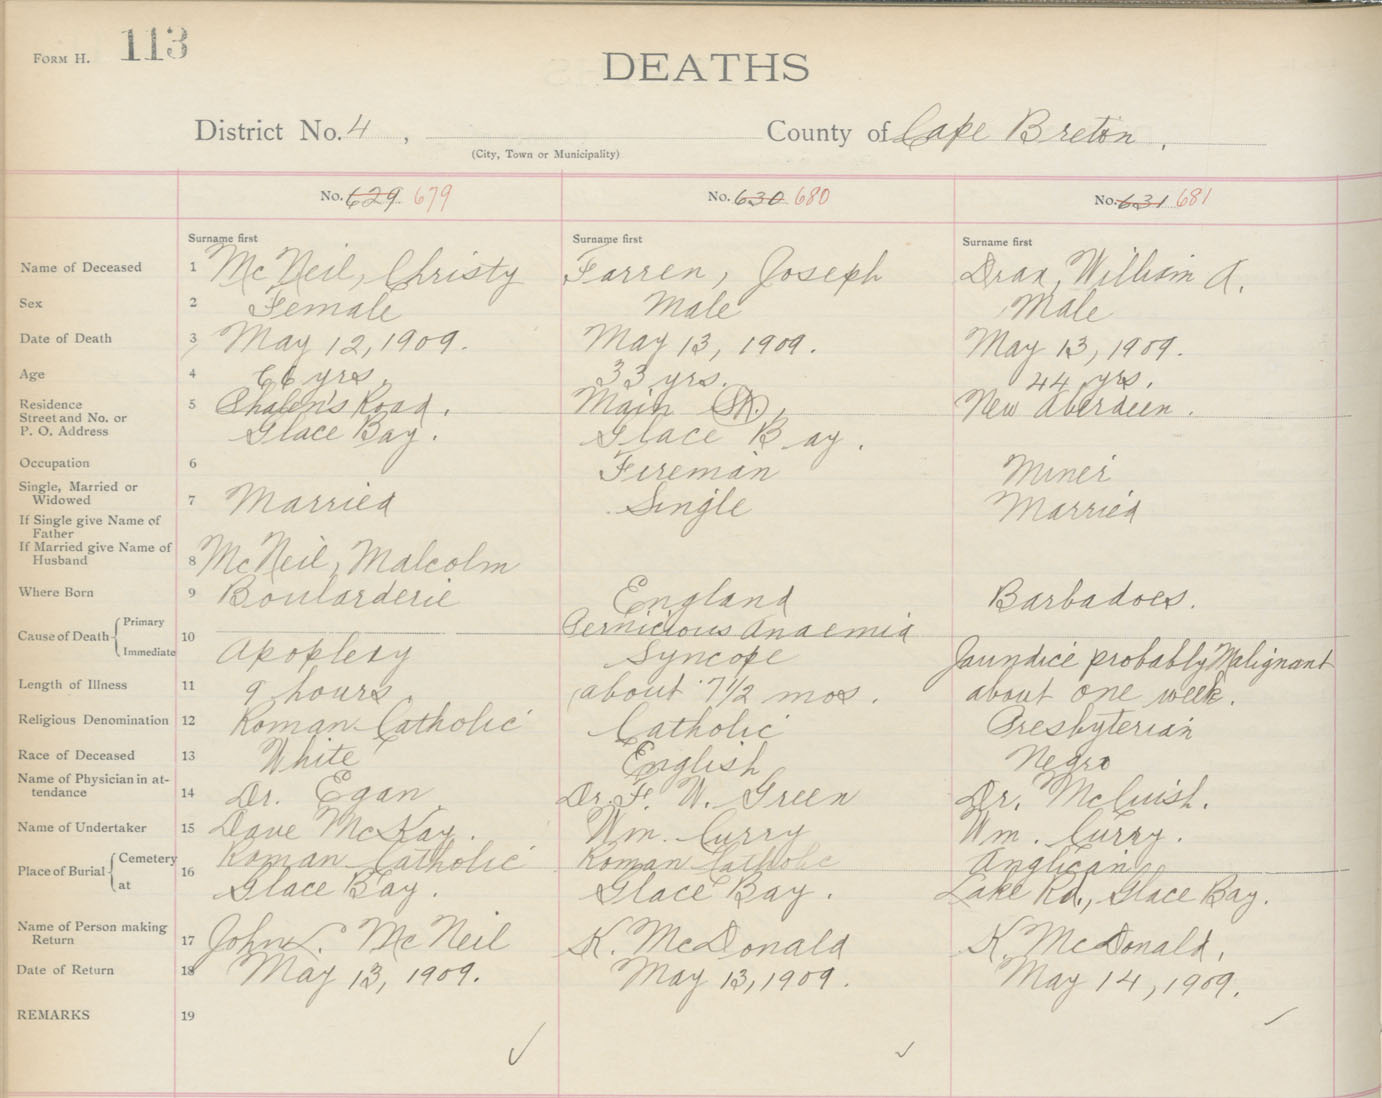 FORM H. 113
DEATHS
District No. 4 , County of Cape Breton .
(City, Town or Municipality)
No. 629 679 No. 630 680 No. 631 681
Surname first Surname first Surname first
Name of Deceased 1 McNeil, Christy Farren, Joseph Drax, William A.
Sex 2 Female Male Male
Date of Death 3 May 12, 1909. May 13, 1909. May 13, 1909.
Age 4 66 yrs. 33 yrs. 44 yrs.
Residence Street and No. or P. O. Address 5 Phalen's Road, Main St., New Aberdeen.
Glace Bay. Glace Bay.
Occupation 6 Fireman Miner
Single, Married or Widowed 7 Married Single Married
If Single give Name of Father
If Married give Name of Husband 8 McNeil, Malcolm
Where Born 9 Boularderie England Barbadoes.
Cause of Death Primary 10 Pernicious Anaemia
Immediate Apoplexy Syncope Jaundice probably Malignant
Length of Illness 11 9 hours. about 7 1/2 mos. about one week.
Religious Denomination 12 Roman Catholic Catholic Presbyterian
Race of Deceased 13 White English Negro
Name of Physician in attendance 14 Dr. Egan Dr. F. W. Green Dr. McCuish.
Name of Undertaker 15 Dave McKay. Wm. Curry Wm. Curry.
Place of Burial Cemetery 16 Roman Catholic Roman Catholic Anglican
at Glace Bay. Glace Bay. Lake Rd., Glace Bay.
Name of Person making Return 17 John L. McNeil K. McDonald K. McDonald.
Date of Return 18 May 13, 1909. May 13, 1909. May 14, 1909.
REMARKS 19